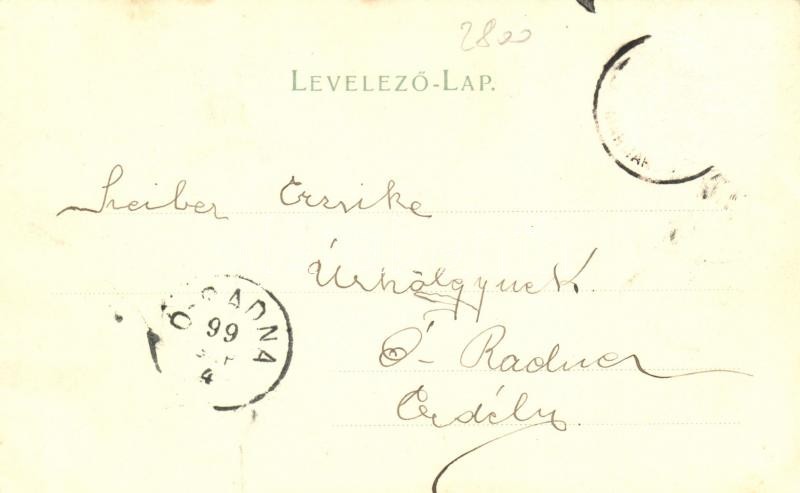 2800
LEVELEZŐ-LAP.
Szeiber Erzsike
Úrhölgynek
Ó-RADNA
99
4
Ó-Radna
Erdély